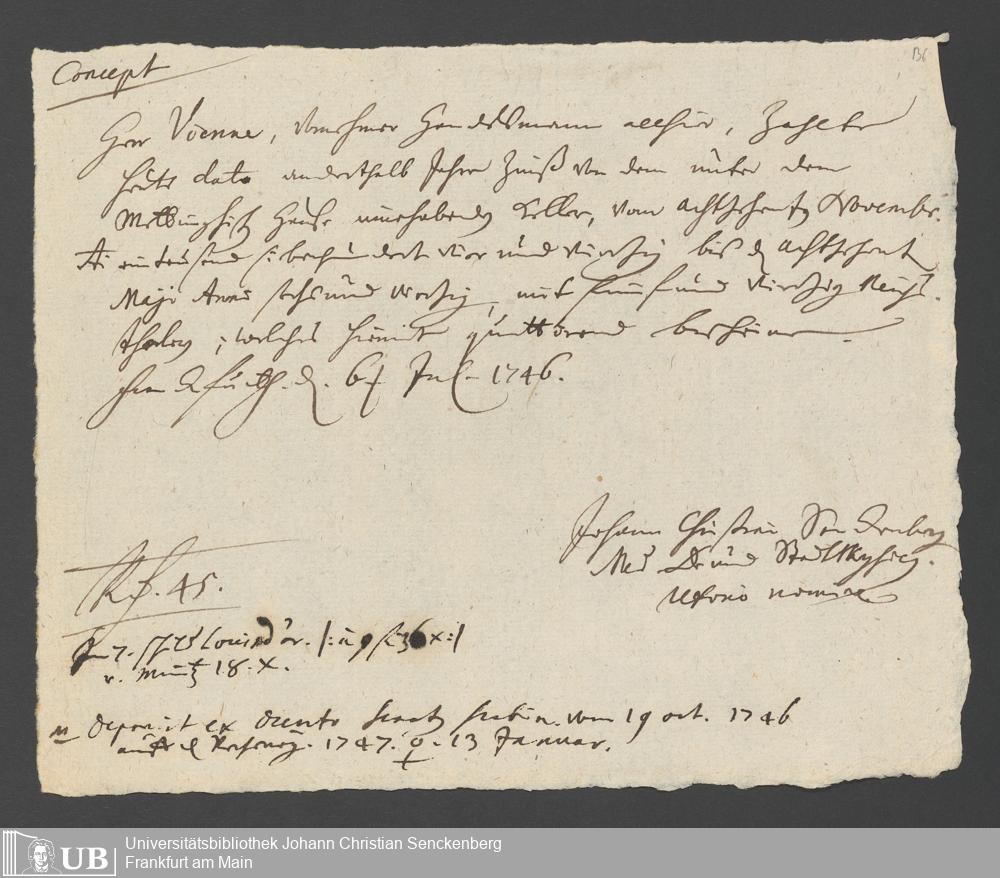 Concept
136
Herr Vienne, Vornehmer Handelsmann allhier, Zahlte
heute dato anderthalb Jahre Zinß von dem unter dem
Hauße innehabenden Keller, vom achtzehenten Novembr.
Ai eintausend siebenhundert vier und viertzig bis d. achtzehent
Maji Anni sechs und viertzig, mit fünf und viertzig Reichs
thalern; welches hiemit quittirend bescheine.
Frankfurth. d. 6t Jul. 1746.
Johann Christian Senckenberg
Med. Dr. und Stadt Physicus.
uxorio nomine
Rth. 45.
In 7. Louisd'or. |: à 9 f 36 x :|
u. Müntz 18. x.
vom 19 oct. 1746
1747. ♀. 13 Januar.
UB
Universitätsbibliothek Johann Christian Senckenberg
Frankfurt am Main